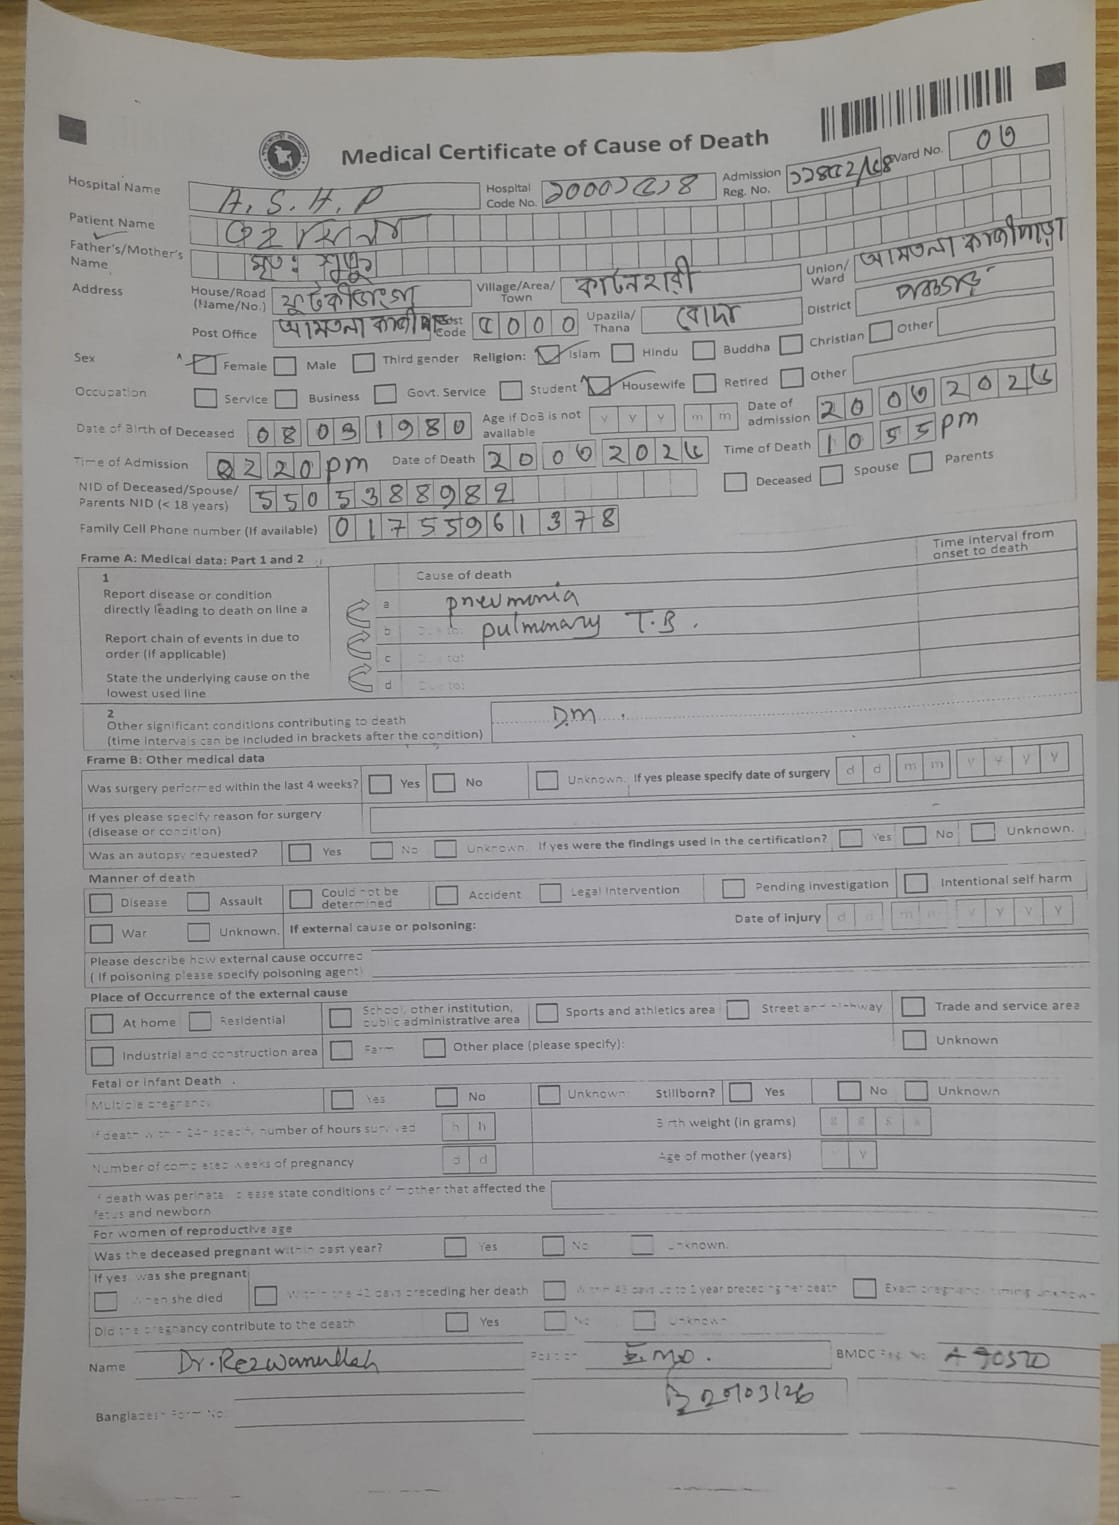 Medical Certificate of Cause of Death
Hospital Name A.S.H.P Hospital Code No. Admission Reg. No. Ward No. 0৩
Patient Name
Father's/Mother's Name মৃত:
Address House/Road (Name/No.) Village/Area/Town Union/Ward আমতলা কাজীপাড়া
Post Office আমতলা কাজীপাড়া Post Code ৫০০০ Upazila/Thana বোদা District পঞ্চগড়
Sex Female Male Third gender Religion: Islam Hindu Buddha Christian Other
Occupation Service Business Govt. Service Student Housewife Retired Other
Date of Birth of Deceased 08 1980 Age if DoB is not available y y y m m Date of admission 20 0৩ 202৬
Time of Admission pm Date of Death 20 0৩ 202৬ Time of Death 10 55 pm
NID of Deceased/Spouse/Parents NID (< 18 years) 5505388982 Deceased Spouse Parents
Family Cell Phone number (If available) 01755961378
Frame A: Medical data: Part 1 and 2
Time interval from onset to death
1 Cause of death
Report disease or condition directly leading to death on line a
a pneumonia
Report chain of events in due to order (if applicable)
b Due to: pulmonary T.B.
c Due to:
State the underlying cause on the lowest used line
d Due to:
2
Other significant conditions contributing to death D.M.
(time intervals can be included in brackets after the condition)
Frame B: Other medical data
Was surgery performed within the last 4 weeks? Yes No Unknown. If yes please specify date of surgery d d m m y y y y
If yes please specify reason for surgery (disease or condition)
Was an autopsy requested? Yes No Unknown. If yes were the findings used in the certification? Yes No Unknown.
Manner of death
Disease Assault Could not be determined Accident Legal Intervention Pending investigation Intentional self harm
War Unknown. If external cause or poisoning: Date of injury d d m m y y y y
Please describe how external cause occurred
( If poisoning please specify poisoning agent)
Place of Occurrence of the external cause
At home Residential School, other institution, public administrative area Sports and athletics area Street and highway Trade and service area
Industrial and construction area Farm Other place (please specify): Unknown
Fetal or infant Death
Multiple pregnancy Yes No Unknown Stillborn? Yes No Unknown
If death within 24h specify number of hours survived h h Birth weight (in grams) g g g g
Number of completed weeks of pregnancy d d Age of mother (years) y
If death was perinatal please state conditions of mother that affected the fetus and newborn
For women of reproductive age
Was the deceased pregnant within past year? Yes No Unknown.
If yes was she pregnant
When she died Within the 42 days preceding her death Within 43 days up to 1 year preceding her death Exact pregnancy timing unknown
Did the pregnancy contribute to the death Yes No Unknown
Name Dr. Rezwanullah Position E.M.O. BMDC
20/03/26
Bangladesh Form No